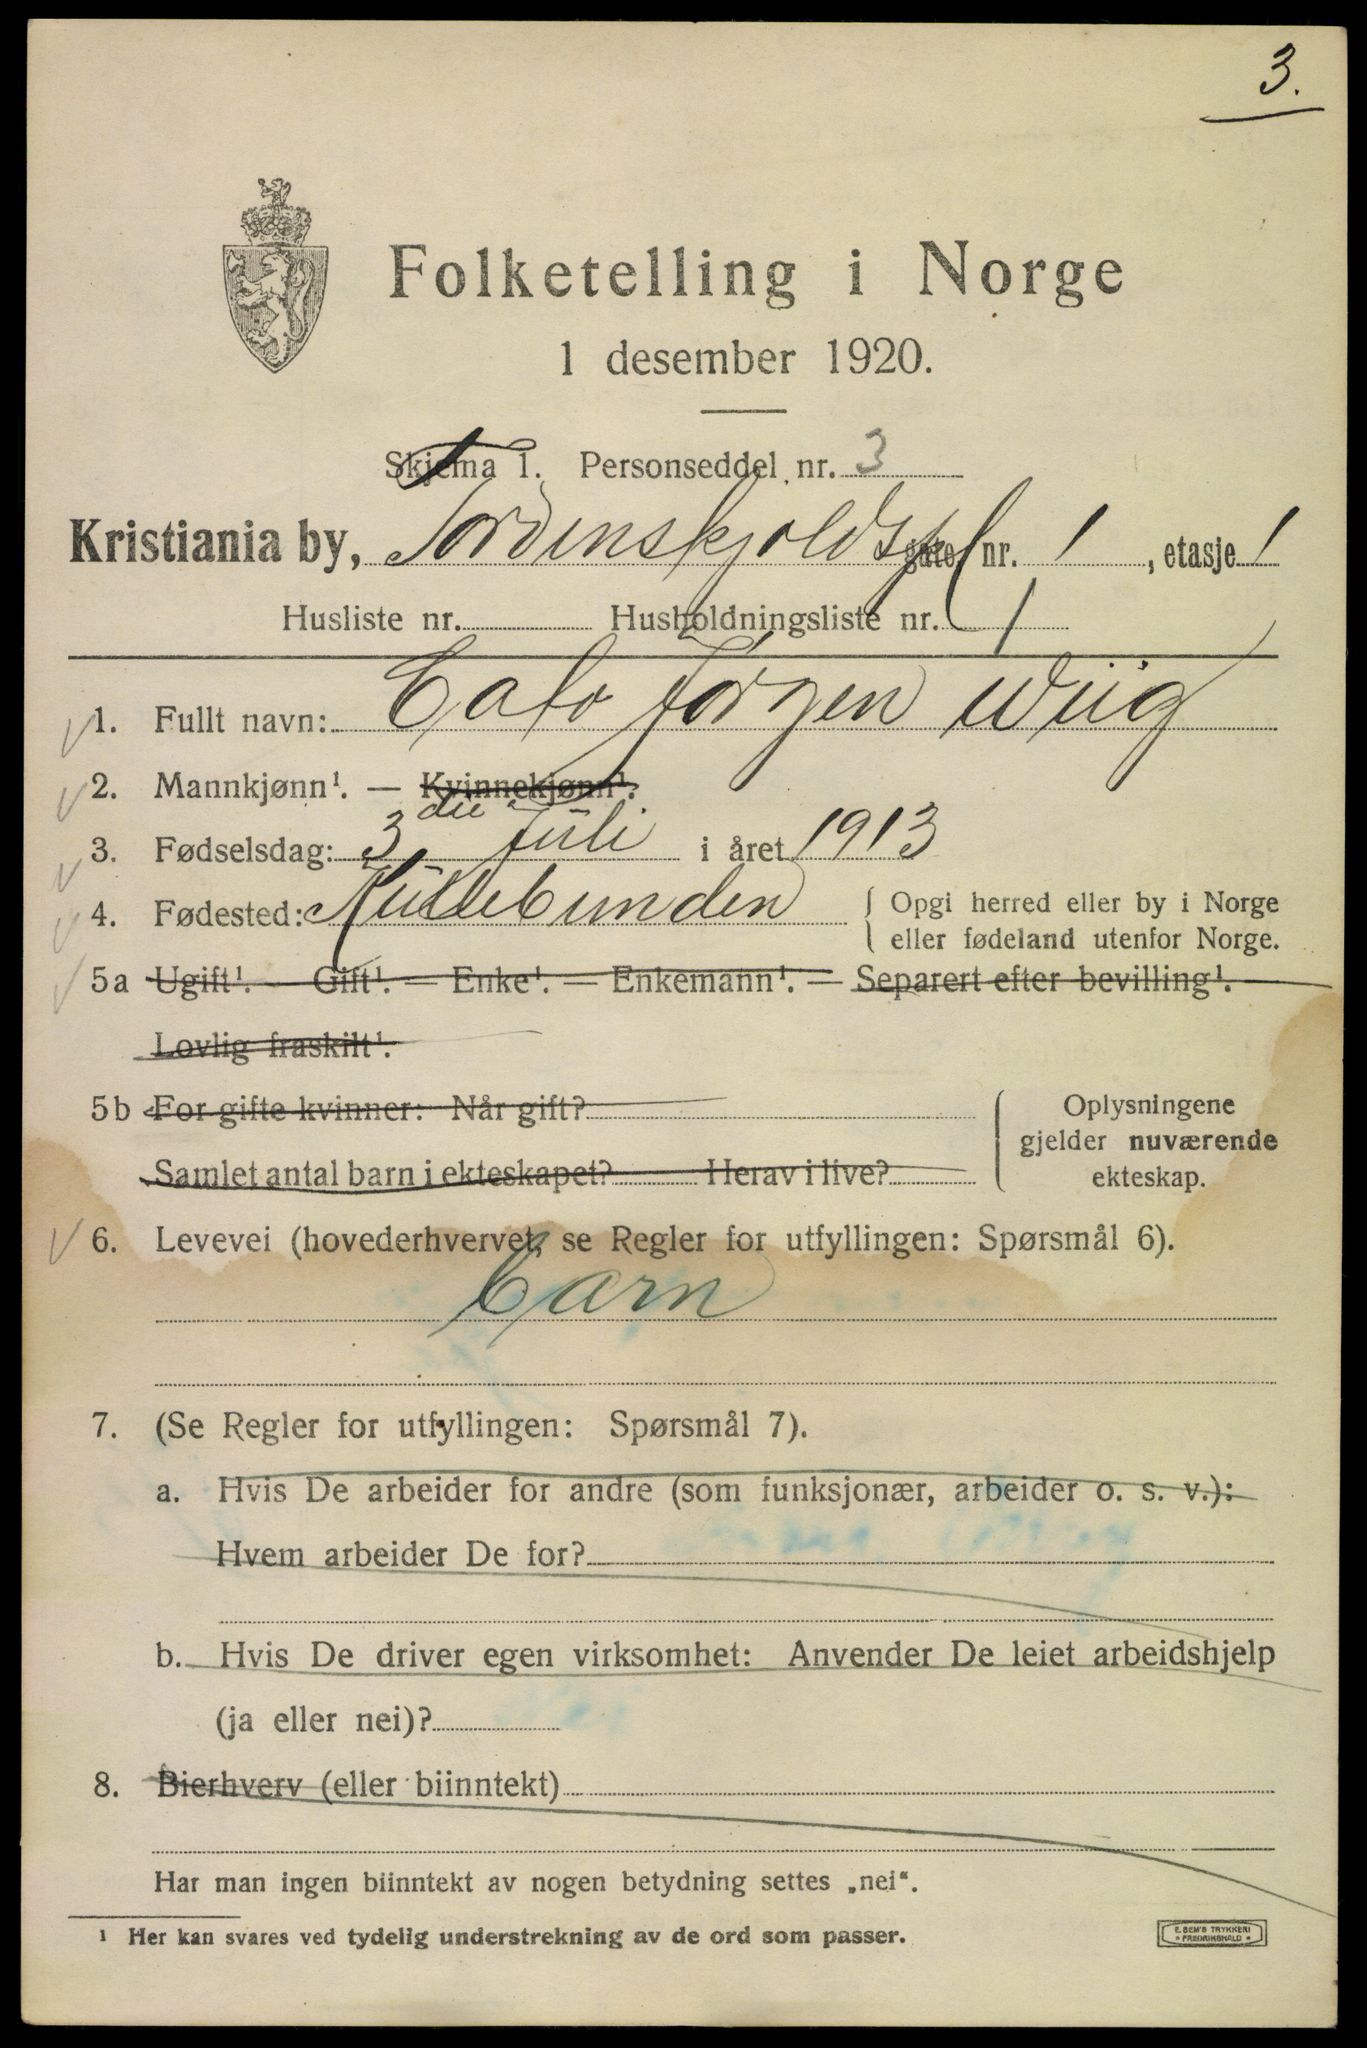 3.
Folketelling i Norge
1 desember 1920.
Skjema 1. Personseddel nr. 3
Kristiania by, Tordenskjoldspl gate nr. 1, etasje 1
Husliste nr. Husholdningsliste nr. 1
1. Fullt navn: Cato Jørgen Wiig
2. Mannkjønn¹. — Kvinnekjønn¹.
3. Fødselsdag: 3 die Juli i året 1913
4. Fødested: { Opgi herred eller by i Norge
{ eller fødeland utenfor Norge.
5a Ugift¹. — Gift¹. — Enke¹. — Enkemann¹. — Separert efter bevilling¹.
Lovlig fraskilt¹.
5b For gifte kvinner: Når gift?
Samlet antal barn i ekteskapet? Herav i live?
{ Oplysningene
gjelder nuværende
ekteskap.
6. Levevei (hovederhvervet, se Regler for utfyllingen: Spørsmål 6).
barn
7. (Se Regler for utfyllingen: Spørsmål 7).
a. Hvis De arbeider for andre (som funksjonær, arbeider o. s. v.):
Hvem arbeider De for?
b. Hvis De driver egen virksomhet: Anvender De leiet arbeidshjelp
(ja eller nei)?
8. Bierhverv (eller biinntekt)
Har man ingen biinntekt av nogen betydning settes „nei“.
¹ Her kan svares ved tydelig understrekning av de ord som passer.
E. SEM'S TRYKKERI
* FREDRIKSHALD *